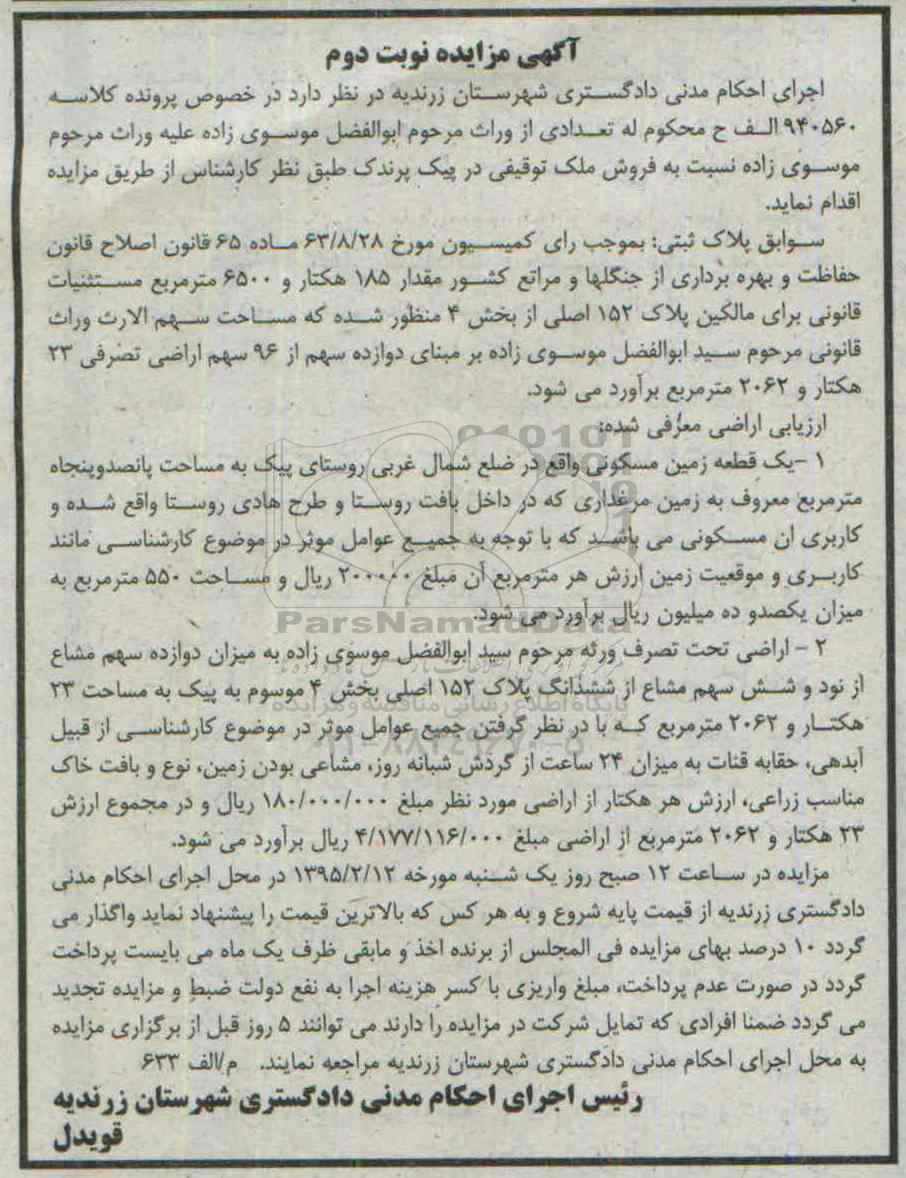 آگهی مزایده نوبت دوم
اجرای احکام مدنی دادگستری شهرستان زرندیه در نظر دارد در خصوص پرونده کلاسه
۹۴۰۵۶۰ الف ح محکوم له تعدادی از وراث مرحوم ابوالفضل موسوی زاده علیه وراث مرحوم
موسوی زاده نسبت به فروش ملک توقیفی در پیک پرندک طبق نظر کارشناس از طریق مزایده
اقدام نماید.
سوابق پلاک ثبتی: بموجب رای کمیسیون مورخ ۶۳/۸/۲۸ ماده ۶۵ قانون اصلاح قانون
حفاظت و بهره برداری از جنگلها و مراتع کشور مقدار ۱۸۵ هکتار و ۶۵۰۰ مترمربع مستثنیات
قانونی برای مالکین پلاک ۱۵۲ اصلی از بخش ۴ منظور شده که مساحت سهم الارث وراث
قانونی مرحوم سید ابوالفضل موسوی زاده بر مبنای دوازده سهم از ۹۶ سهم اراضی تصرفی ۲۳
هکتار و ۲۰۶۲ مترمربع برآورد می شود.
ارزیابی اراضی معرفی شده:
۱ -یک قطعه زمین مسکونی واقع در ضلع شمال غربی روستای پیک به مساحت پانصدوپنجاه
مترمربع معروف به زمین مرغداری که در داخل بافت روستا و طرح هادی روستا واقع شده و
کاربری ان مسکونی می باشد که با توجه به جمیع عوامل موثر در موضوع کارشناسی مانند
کاربری و موقعیت زمین ارزش هر مترمربع آن مبلغ ۲۰۰۰۰۰ ریال و مساحت ۵۵۰ مترمربع به
میزان یکصدو ده میلیون ریال برآورد می شود.
ParsNamadData
۲ - اراضی تحت تصرف ورثه مرحوم سید ابوالفضل موسوی زاده به میزان دوازده سهم مشاع
از نود و شش سهم مشاع از ششدانگ پلاک ۱۵۲ اصلی بخش ۴ موسوم به پیک به مساحت ۲۳
پایگاه اطلاع رسانی مناقصه و مزایده
هکتار و ۲۰۶۲ مترمربع که با در نظر گرفتن جمیع عوامل موثر در موضوع کارشناسی از قبیل
آبدهی، حقابه قنات به میزان ۲۴ ساعت از گردش شبانه روز، مشاعی بودن زمین، نوع و بافت خاک
مناسب زراعی، ارزش هر هکتار از اراضی مورد نظر مبلغ ۱۸۰/۰۰۰/۰۰۰ ریال و در مجموع ارزش
۲۳ هکتار و ۲۰۶۲ مترمربع از اراضی مبلغ ۴/۱۷۷/۱۱۶/۰۰۰ ریال برآورد می شود.
مزایده در ساعت ۱۲ صبح روز یک شنبه مورخه ۱۳۹۵/۲/۱۲ در محل اجرای احکام مدنی
دادگستری زرندیه از قیمت پایه شروع و به هر کس که بالاترین قیمت را پیشنهاد نماید واگذار می
گردد ۱۰ درصد بهای مزایده فی المجلس از برنده اخذ و مابقی ظرف یک ماه می بایست پرداخت
گردد در صورت عدم پرداخت، مبلغ واریزی با کسر هزینه اجرا به نفع دولت ضبط و مزایده تجدید
می گردد ضمنا افرادی که تمایل شرکت در مزایده را دارند می توانند ۵ روز قبل از برگزاری مزایده
به محل اجرای احکام مدنی دادگستری شهرستان زرندیه مراجعه نمایند. م/الف ۶۳۳
رئیس اجرای احکام مدنی دادگستری شهرستان زرندیه
قویدل